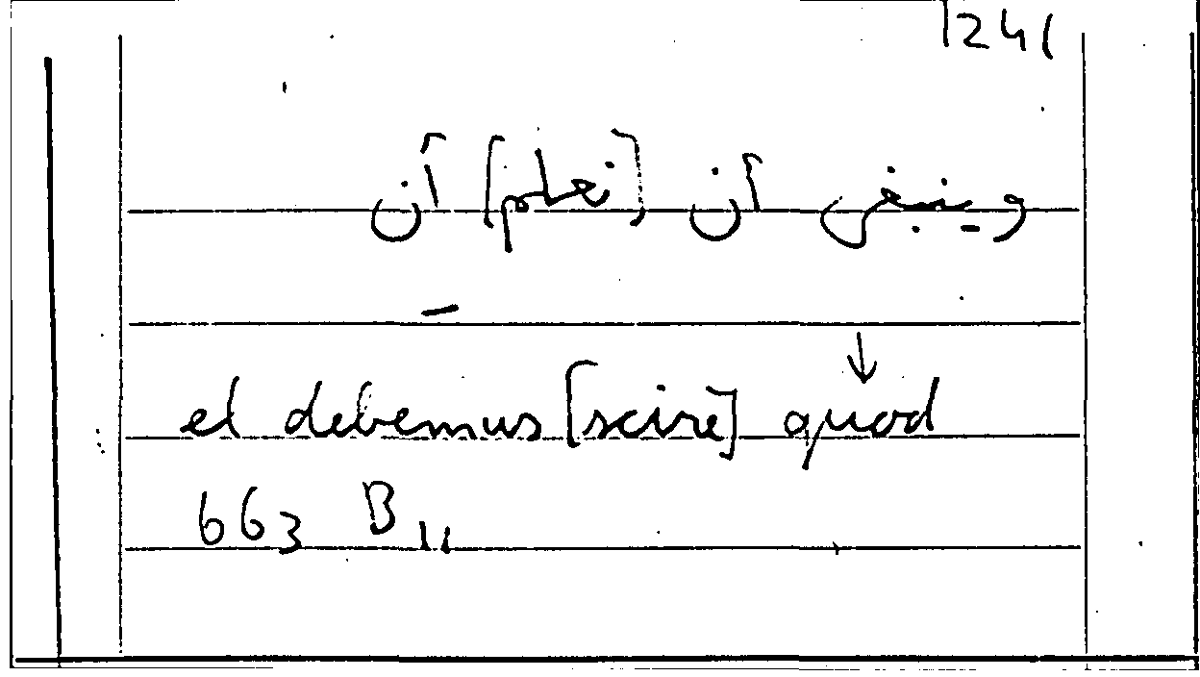 1241
وينبغى أن [نعلم] أن
el debemus [scire] quod
663 B 11